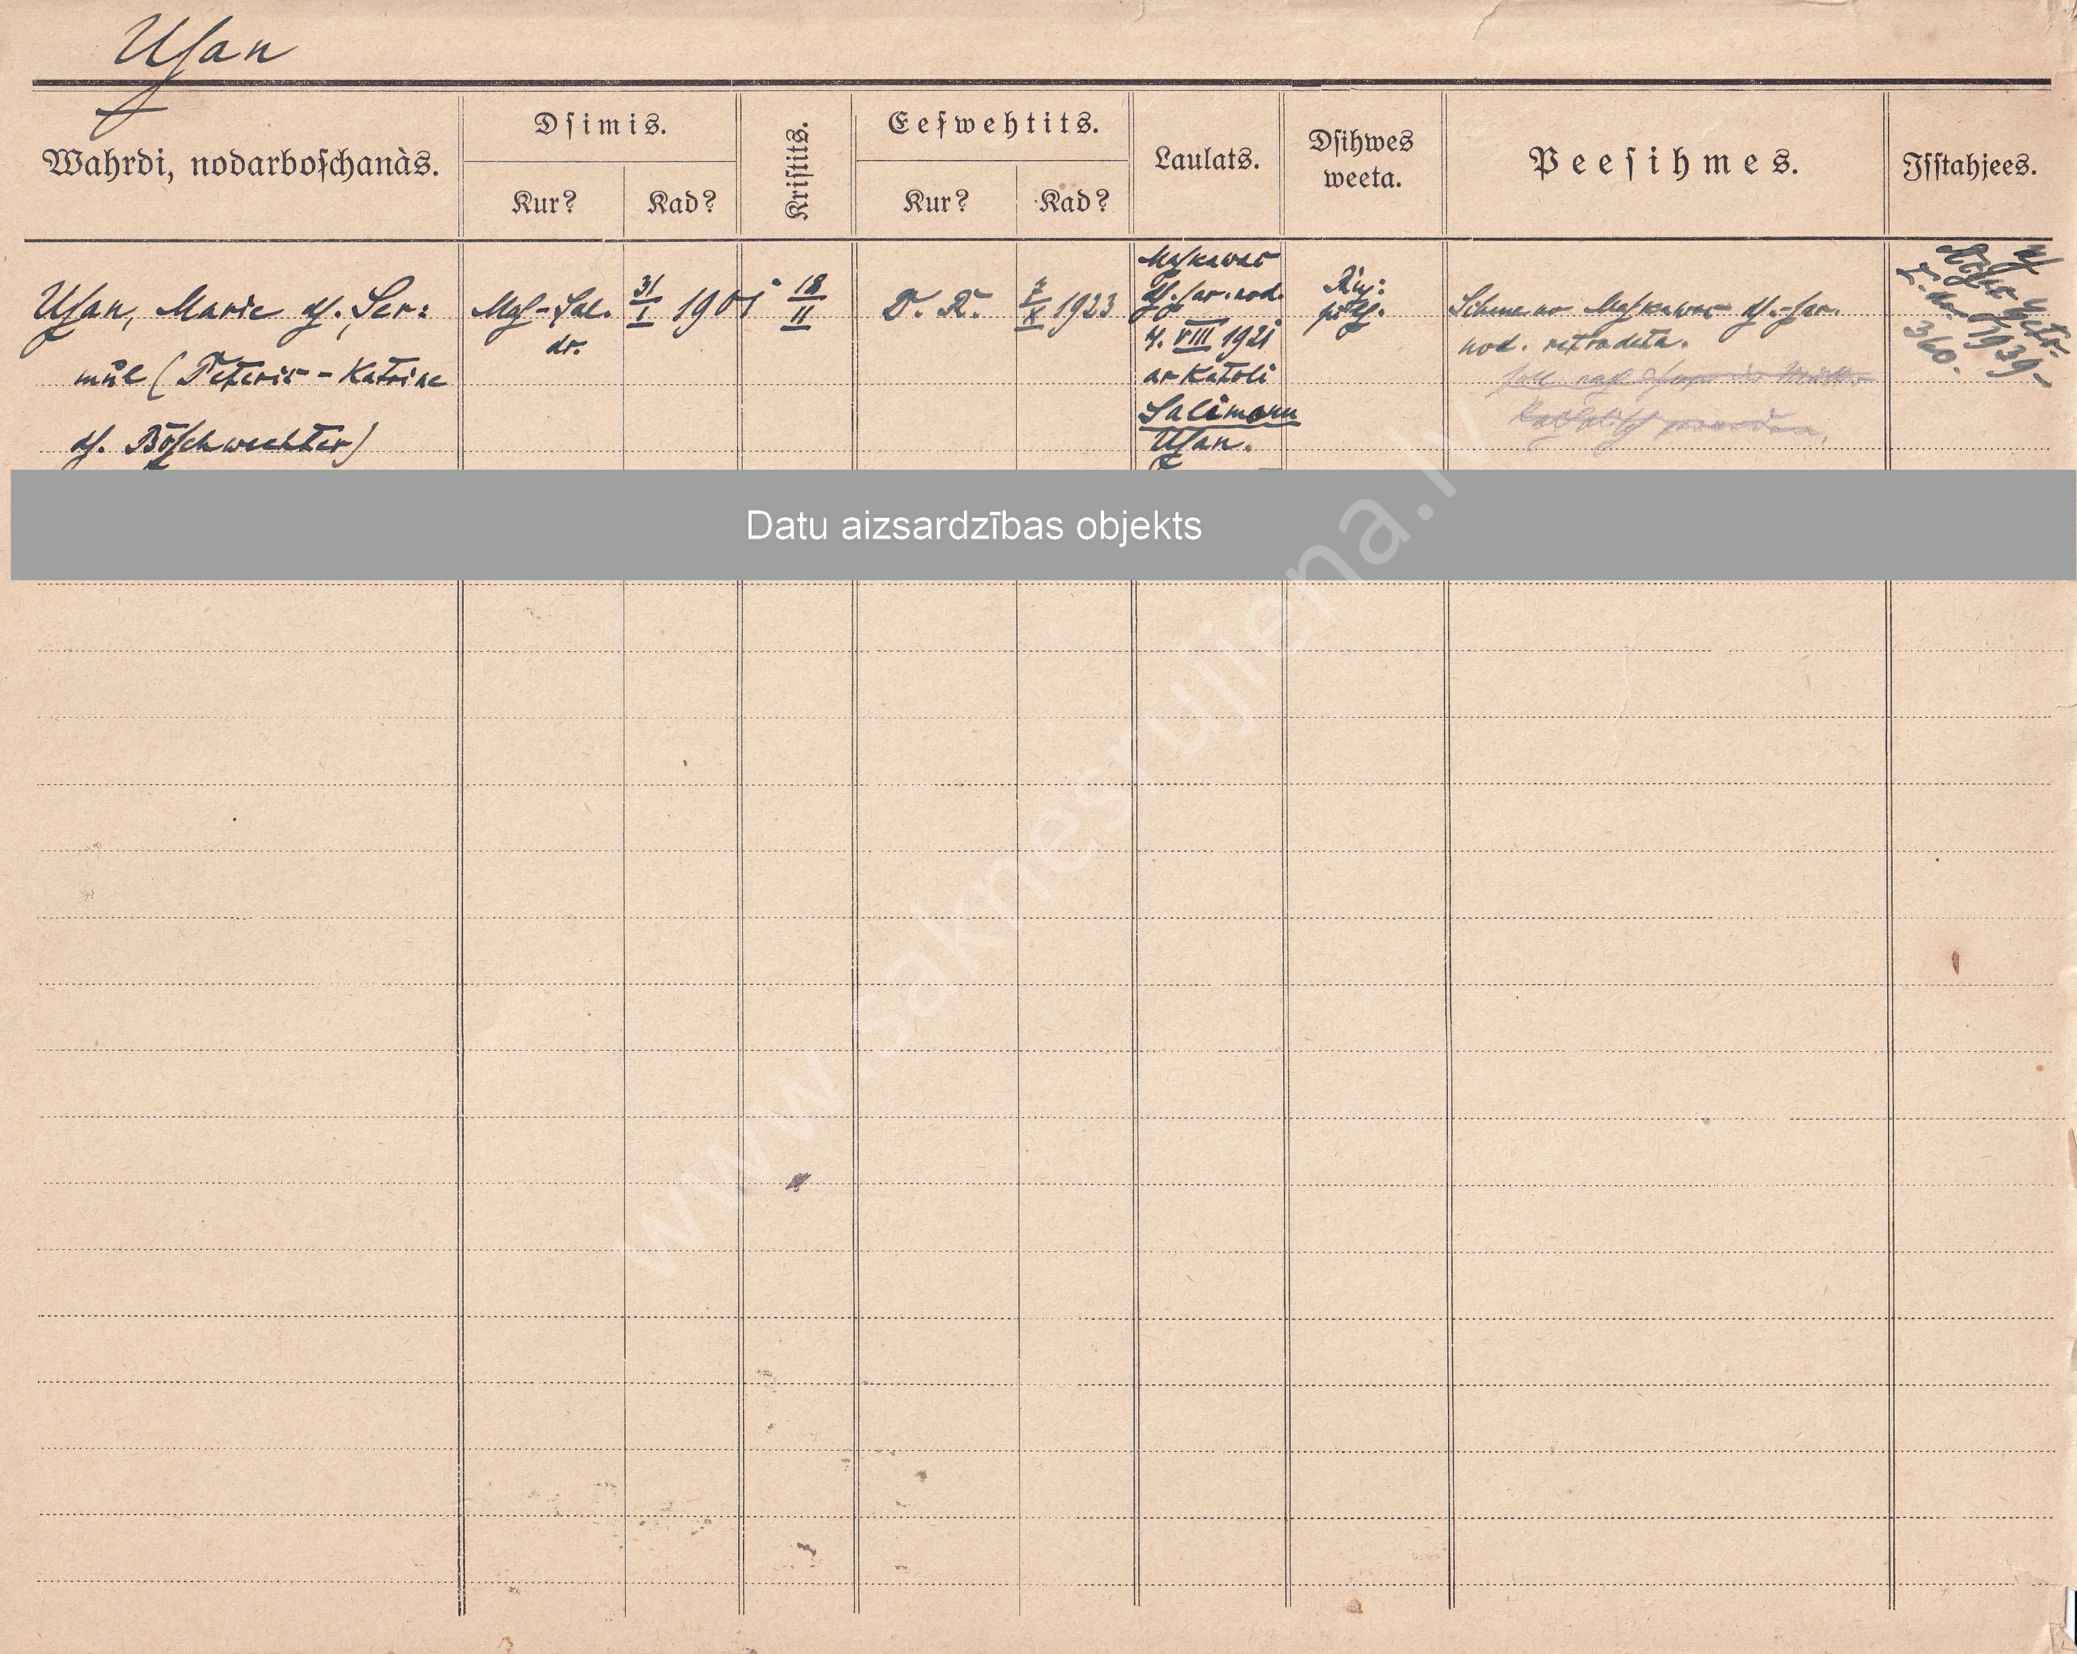 Uſan
Wahrdi, nodarboſchanàs.
Dſimis.
Kur?
Kad?
Kriſtits.
Eeſwehtits.
Kur?
Kad?
Laulats.
Dſihwes
weeta.
Peeſihmes.
Iſſtahjees.
Uſan, Marie dſ. Ser:
mul (Peteris - Katrine
dſ. Böſchwechter)
Maſ-Sal.
dr.
31/I 1901
18/II
D. R.
7/X 1923
Maſkawas
dſ. ſar. nod.
4. VIII 1921
ar Katoli
Salimonu
Uſan.
Ruj:
Maſkawas dſ.-ſar.
nod.
1939
360.
Datu aizsardzības objekts
www.saknesrujiena.lv